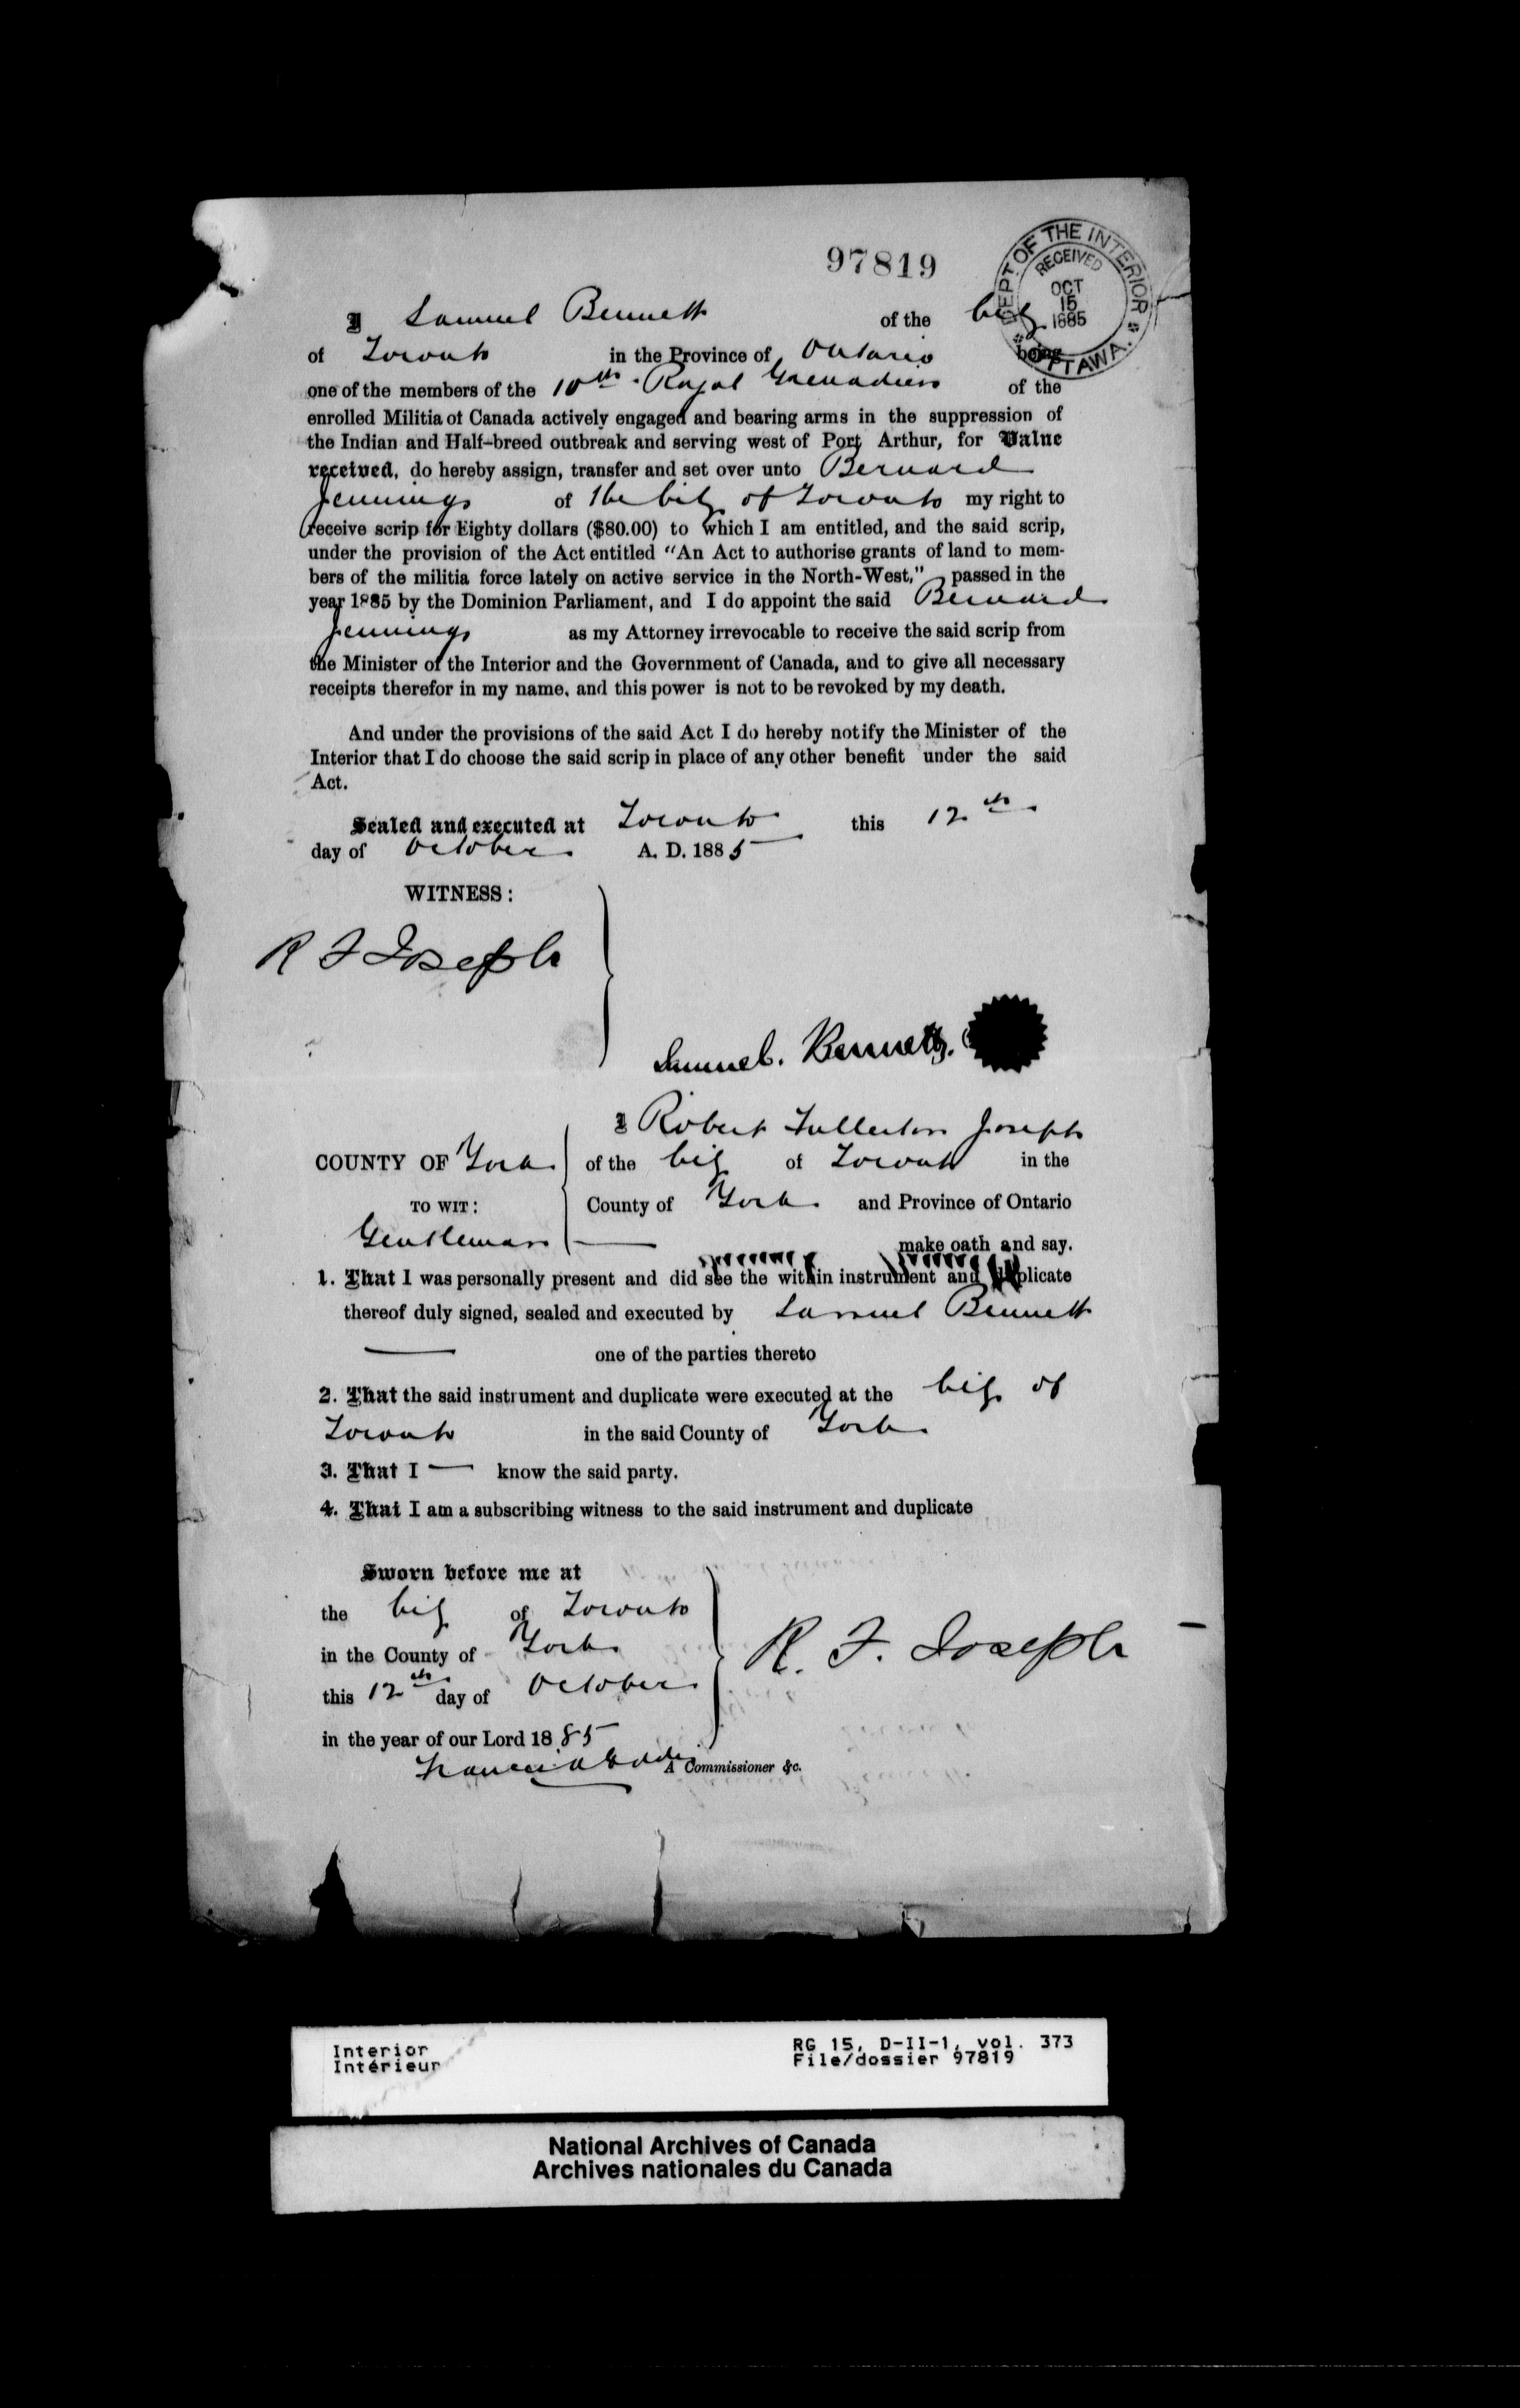 97819
DEPT. OF THE INTERIOR
RECEIVED
OCT
15
1885
OTTAWA.
I Samuel Bennett of the City
of Toronto in the Province of Ontario being
one of the members of the 10th Royal Grenadiers of the
enrolled Militia of Canada actively engaged and bearing arms in the suppression of
the Indian and Half-breed outbreak and serving west of Port Arthur, for Value
received, do hereby assign, transfer and set over unto Bernard
Jennings of the City of Toronto my right to
receive scrip for Eighty dollars ($80.00) to which I am entitled, and the said scrip,
under the provision of the Act entitled "An Act to authorise grants of land to mem-
bers of the militia force lately on active service in the North-West," passed in the
year 1885 by the Dominion Parliament, and I do appoint the said Bernard
Jennings as my Attorney irrevocable to receive the said scrip from
the Minister of the Interior and the Government of Canada, and to give all necessary
receipts therefor in my name, and this power is not to be revoked by my death.
And under the provisions of the said Act I do hereby notify the Minister of the
Interior that I do choose the said scrip in place of any other benefit under the said
Act.
Sealed and executed at Toronto this 12th
day of October A. D. 1885
WITNESS:
R F Joseph
Samuel. Bennett.
I Robert Fullerton Joseph
COUNTY OF York of the City of Toronto in the
TO WIT: County of York and Province of Ontario
Gentleman make oath and say.
1. That I was personally present and did see the within instrument and duplicate
thereof duly signed, sealed and executed by Samuel Bennett
one of the parties thereto
2. That the said instrument and duplicate were executed at the City of
Toronto in the said County of York
3. That I — know the said party.
4. That I am a subscribing witness to the said instrument and duplicate
Sworn before me at
the City of Toronto
in the County of York
this 12th day of October
in the year of our Lord 1885
R. F. Joseph
A Commissioner &c.
Interior
Intérieur
RG 15, D-II-1, vol. 373
File/dossier 97819
National Archives of Canada
Archives nationales du Canada